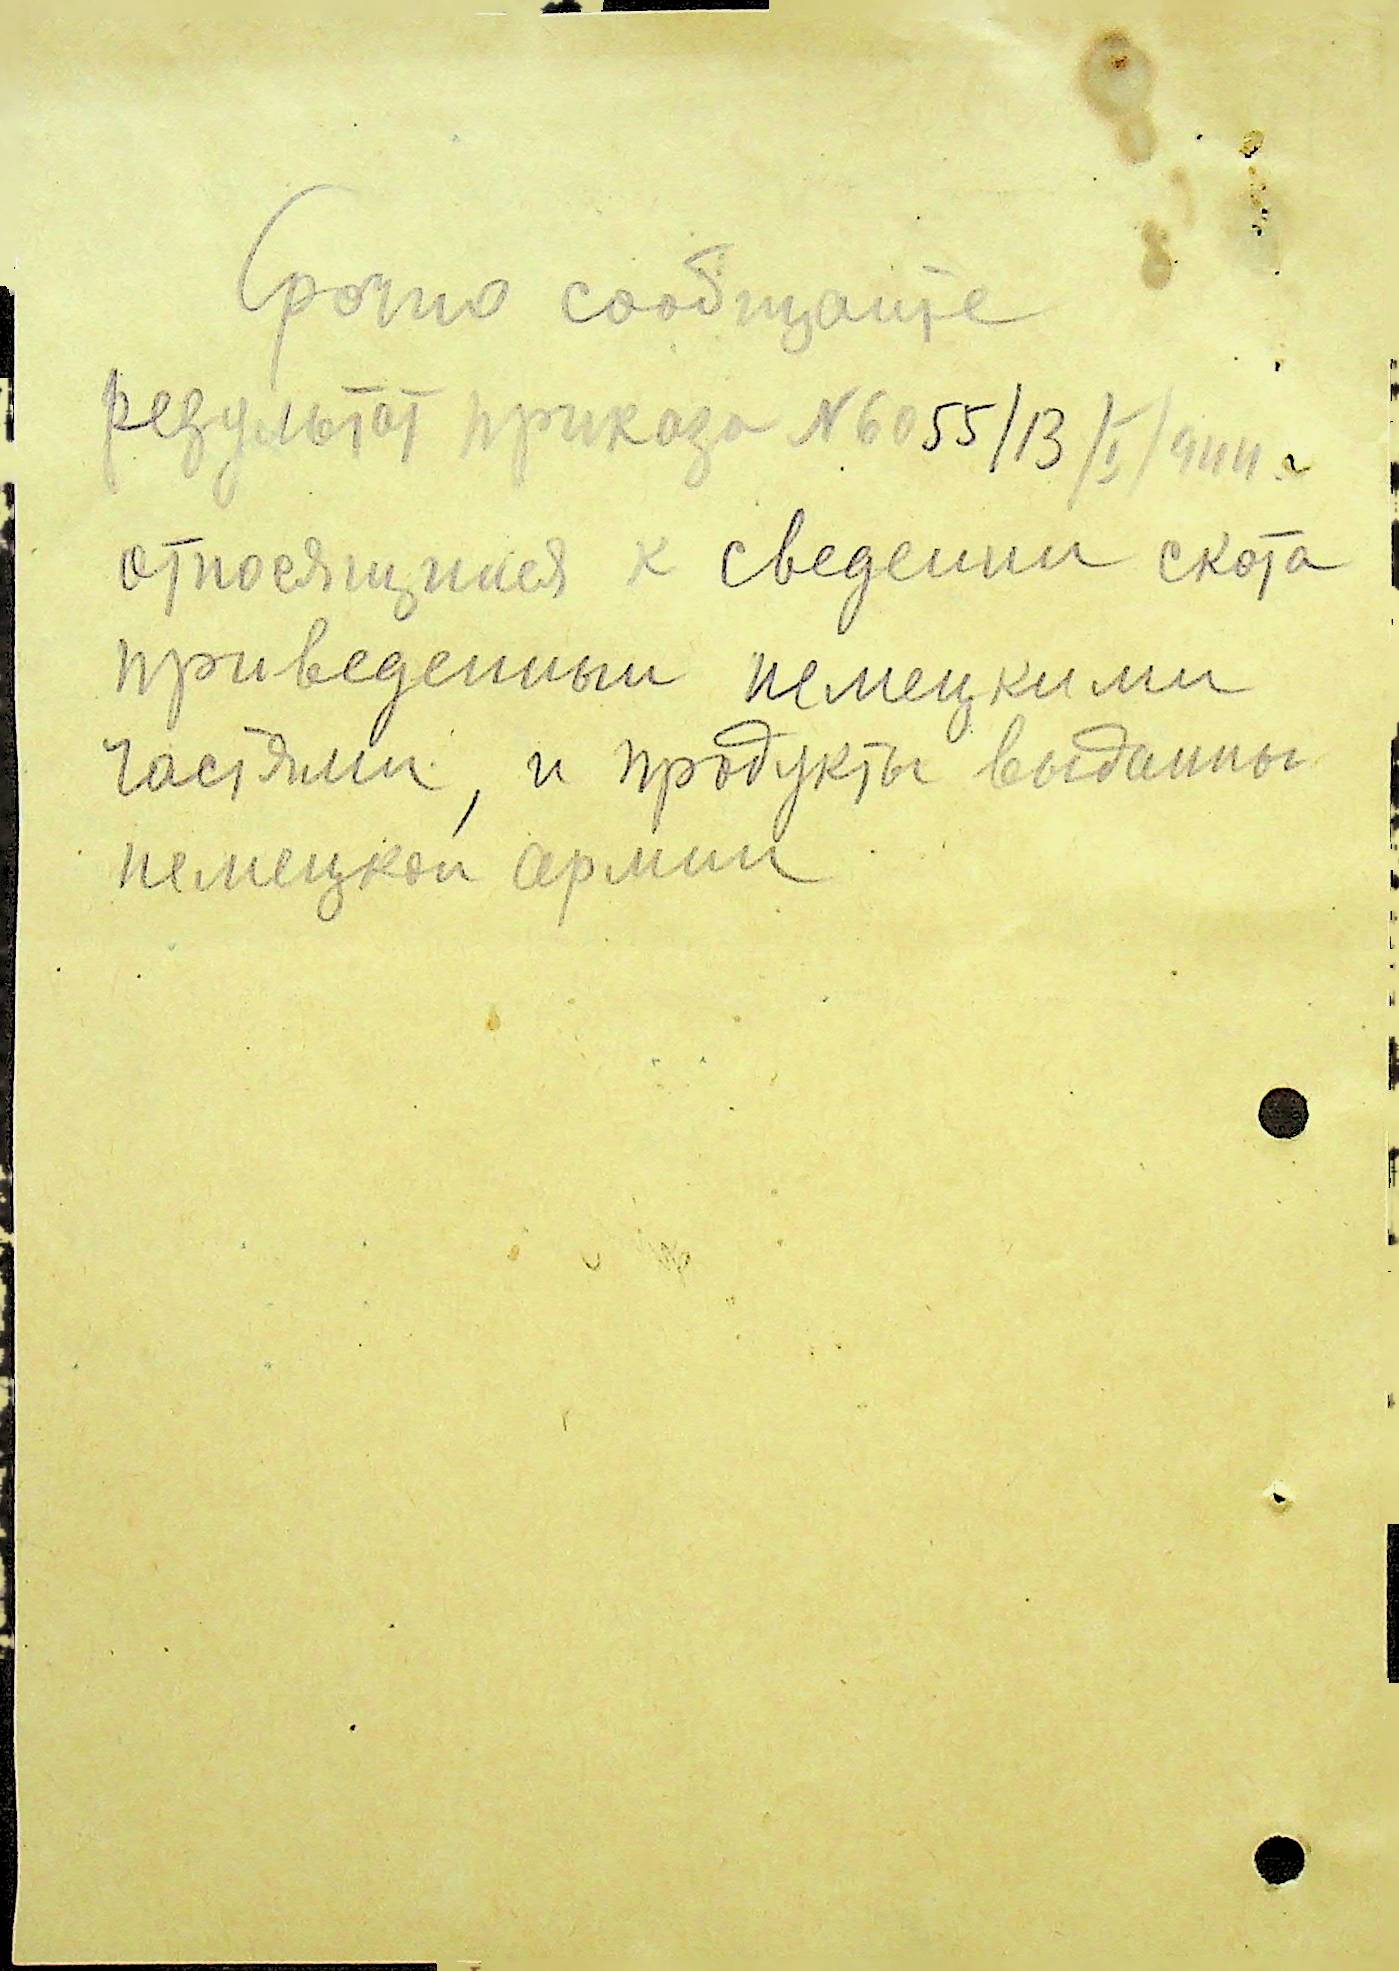 Срочно сообщайте
результат приказа №6055/13/I/944 г
относящийся к сведении скота
приведенный немецкими
частями, и продукты выданны
немецкой армии